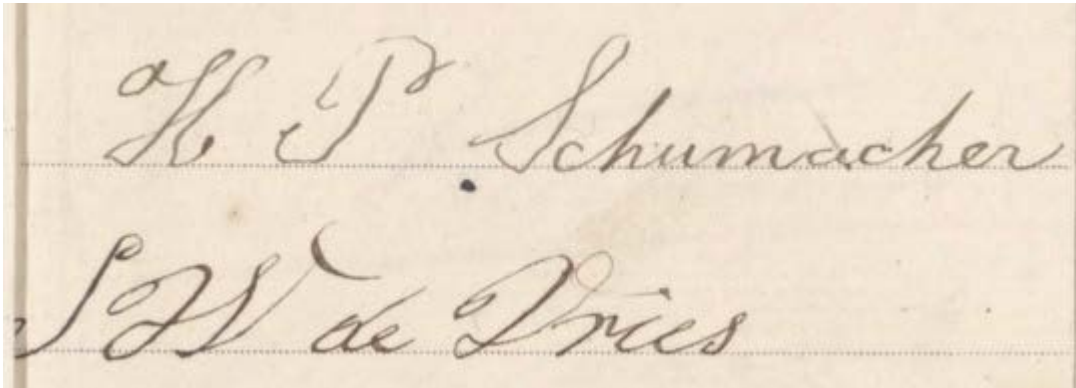 H P Schumacher
S W de Vries